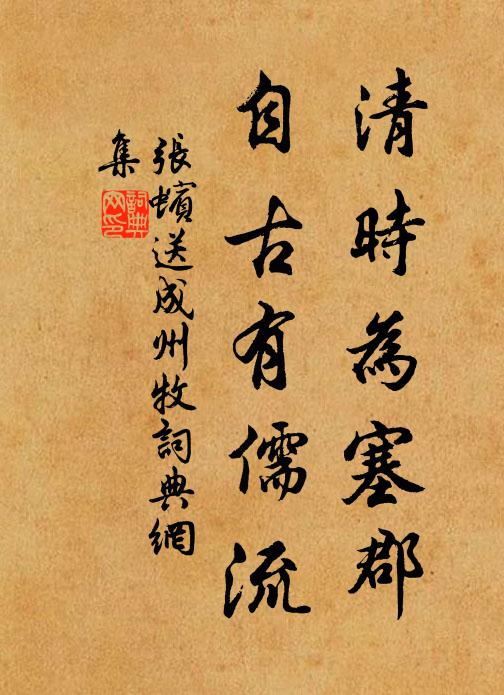 清時為塞郡
自古有儒流
張蠙送成州牧詞典網
集
詞典
网印